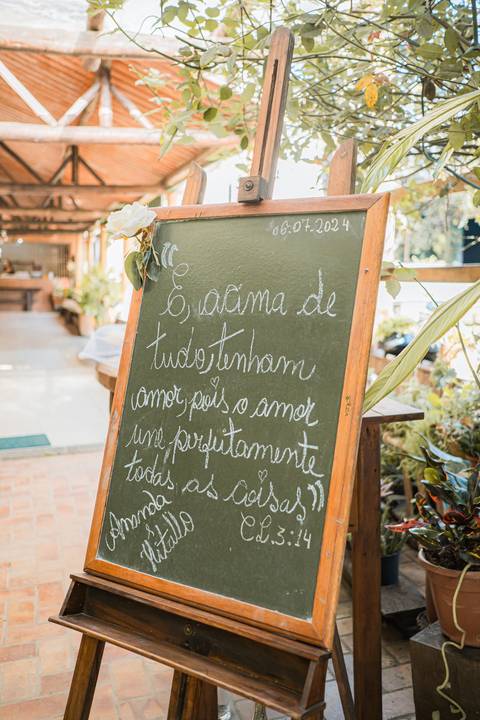 06.07.2024
"E, acima de
tudo, tenham
amor, pois o amor
une perfeitamente
todas as coisas"
CL.3:14
Amanda
&
Hitallo